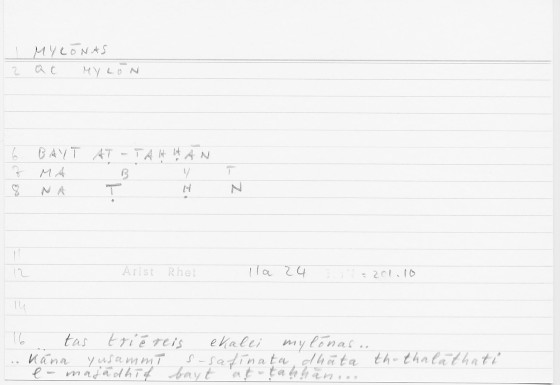 1 MYLŌNAS
2 ac MYLŌN
6 BAYT AṬ-ṬAḤḤĀN
7 MA B Y T
8 NA Ṭ Ḥ N
11
12 Arist Rhet 11a 24 = 201.10
14
16 .. tas triēreis ekalei mylōnas..
.. kāna yusammī s-safīnata dhāta th-thalāthati
l-majādhīf bayt aṭ-ṭaḥḥān...